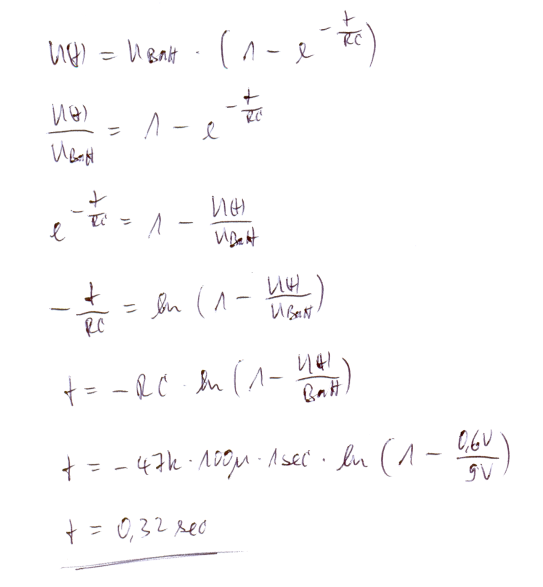 U(t) = U_Batt · (1 - e^(-t/RC))
U(t)/U_Batt = 1 - e^(-t/RC)
e^(-t/RC) = 1 - U(t)/U_Batt
-t/RC = ln (1 - U(t)/U_Batt)
t = -RC · ln (1 - U(t)/Batt)
t = -47k · 100µ · 1sec · ln (1 - 0,6V/9V)
t = 0,32 sec